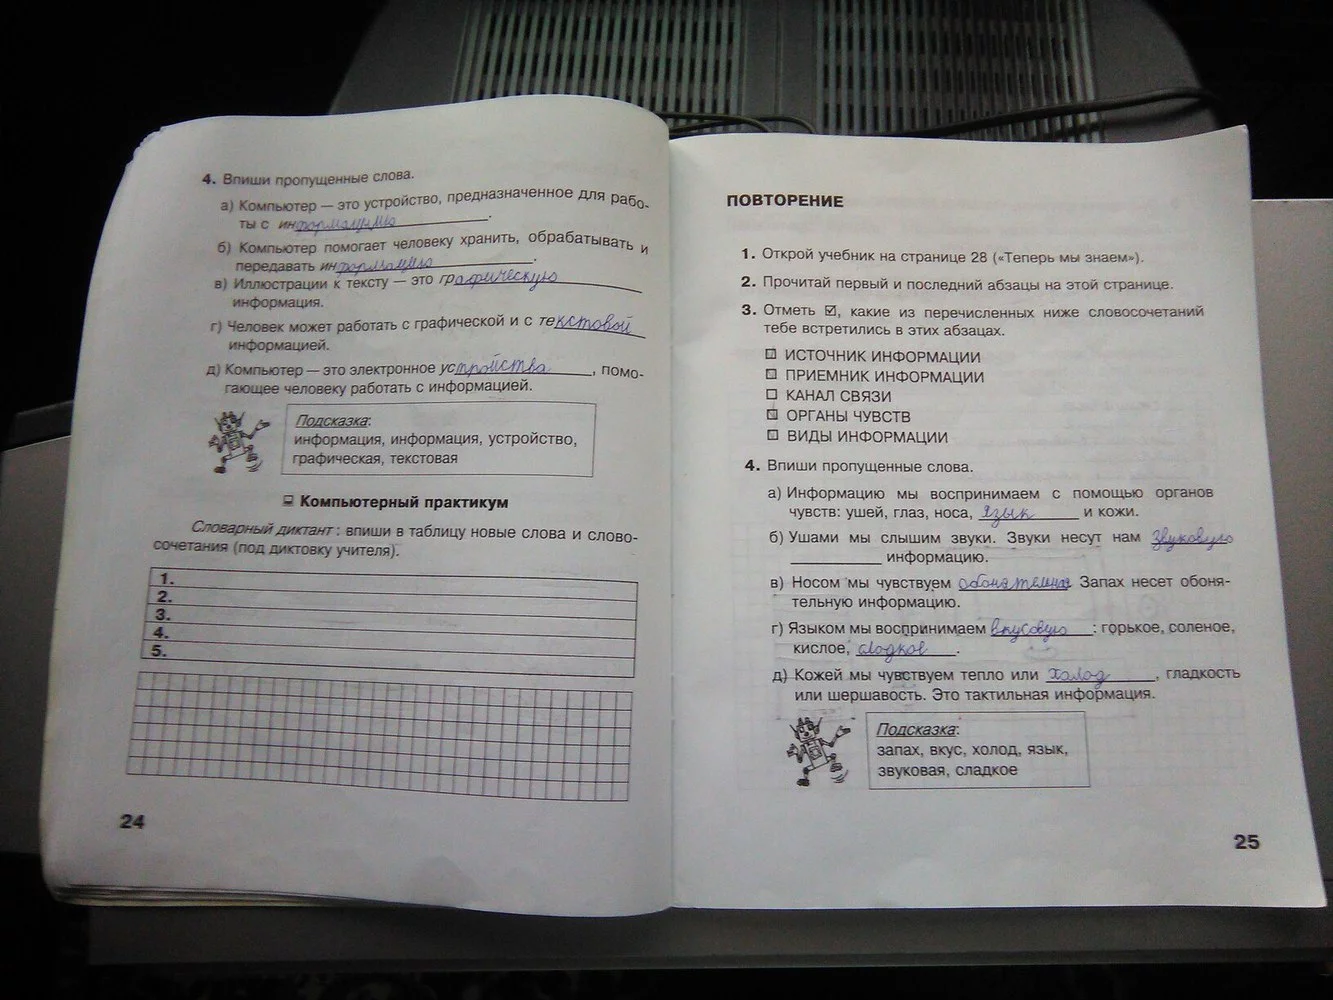 4. Впиши пропущенные слова.
а) Компьютер — это устройство, предназначенное для рабо-
ты с информацию.
б) Компьютер помогает человеку хранить, обрабатывать и
передавать информацию.
в) Иллюстрации к тексту — это графическую
информация.
г) Человек может работать с графической и с текстовой
информацией.
д) Компьютер — это электронное устройства, помо-
гающее человеку работать с информацией.
Подсказка:
информация, информация, устройство,
графическая, текстовая
Компьютерный практикум
Словарный диктант: впиши в таблицу новые слова и слово-
сочетания (под диктовку учителя).
1.
2.
3.
4.
5.
24
ПОВТОРЕНИЕ
1. Открой учебник на странице 28 («Теперь мы знаем»).
2. Прочитай первый и последний абзацы на этой странице.
3. Отметь ☑, какие из перечисленных ниже словосочетаний
тебе встретились в этих абзацах.
ИСТОЧНИК ИНФОРМАЦИИ
ПРИЕМНИК ИНФОРМАЦИИ
КАНАЛ СВЯЗИ
ОРГАНЫ ЧУВСТВ
ВИДЫ ИНФОРМАЦИИ
4. Впиши пропущенные слова.
а) Информацию мы воспринимаем с помощью органов
чувств: ушей, глаз, носа, язык и кожи.
б) Ушами мы слышим звуки. Звуки несут нам звуковую
информацию.
в) Носом мы чувствуем Запах несет обоня-
тельную информацию.
г) Языком мы воспринимаем вкусовую: горькое, соленое,
кислое, сладкое.
д) Кожей мы чувствуем тепло или холод, гладкость
или шершавость. Это тактильная информация.
Подсказка:
запах, вкус, холод, язык,
звуковая, сладкое
25